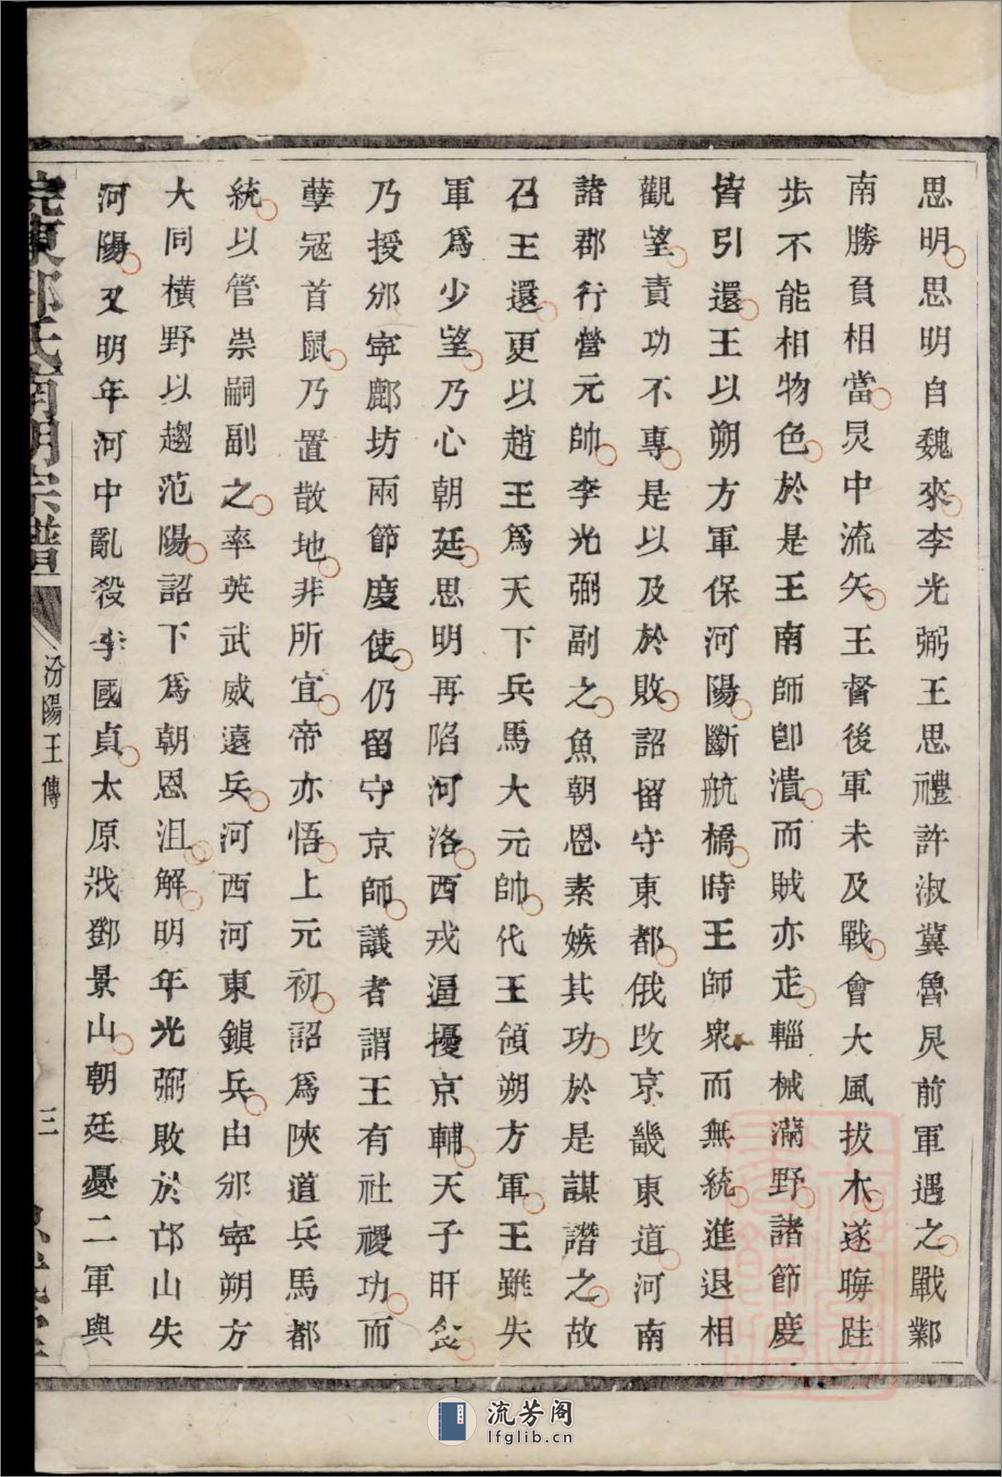 思明思明自魏來李光弼王思禮許淑冀魯炅前軍遇之戰鄴
南勝負相當炅中流矢王督後軍未及戰會大風拔木遂晦跬
步不能相物色於是王南師卽潰而賊亦走輜械滿野諸節度
皆引還王以朔方軍保河陽斷航橋時王師衆而無統進退相
觀望責功不專是以及於敗詔留守東都俄改京畿東道河南
諸郡行營元帥李光弼副之魚朝恩素嫉其功於是謀譖之故
召王還更以趙王爲天下兵馬大元帥代王領朔方軍王雖失
軍爲少望乃心朝廷思明再陷河洛西戎逼擾京輔天子旰食
乃授邠寧鄜坊兩節度使仍留守京師議者謂王有社稷功而
孽寇首鼠乃置散地非所宜帝亦悟上元初詔爲陝道兵馬都
統以管崇嗣副之率英武威遠兵河西河東鎭兵由邠寧朔方
大同橫野以趨范陽詔下爲朝恩沮解明年光弼敗於邙山失
河陽又明年河中亂殺李國貞太原戕鄧景山朝廷憂二軍與
皖東郭氏南明宗譜
汾陽王傳
三
流芳阁
lfglib.cn